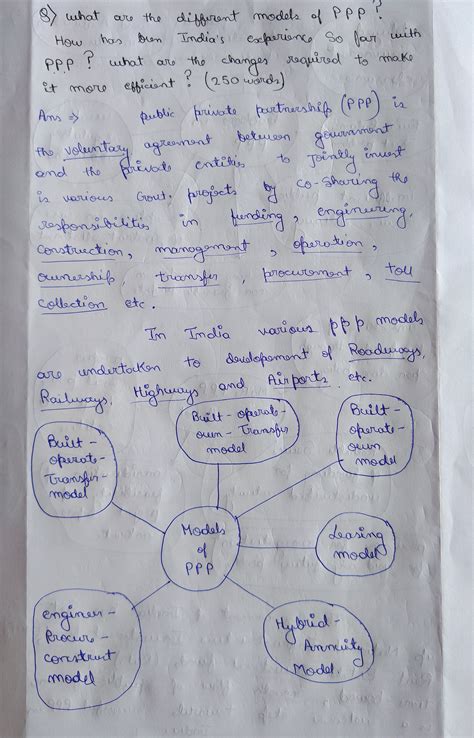 Q) what are the different models of PPP?
How has been India's experience so far with
PPP? what are the changes required to make
it more efficient? (250 words)
Ans ⇒ public private partnership (PPP) is
the voluntary agreement between government
and the private entities to Jointly invest
is various Govt. projects by co-sharing the
responsibilities in funding, engineering,
construction, management, operation,
ownership, transfer, procurement, toll
collection etc.
In India various ppp models
are undertaken to developement of Roadways,
Railways, Highways and Airports etc.
Built-operate-
own-Transfer
model
Built-
operate-
Transfer-
model
Built-
operate-
own
model
Models
of
PPP
Leasing
model
engineer-
Procure-
construct
model
Hybrid-
Annuity
Model.